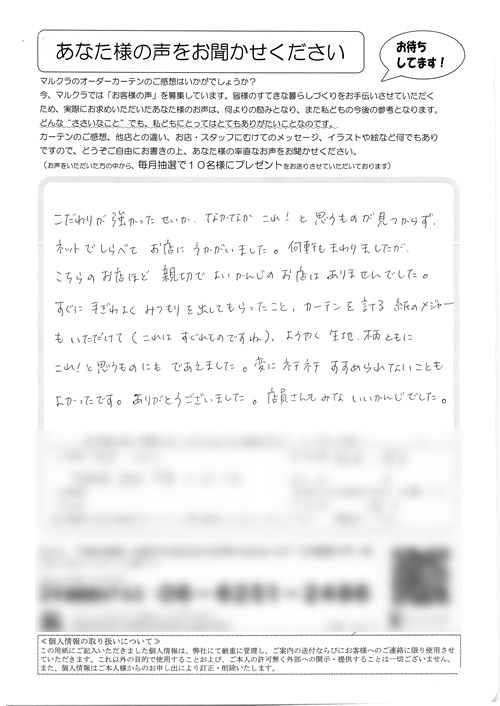 あなた様の声をお聞かせください
お待ち
してます!
マルクラのオーダーカーテンのご感想はいかがでしょうか?
今、マルクラでは「お客様の声」を募集しています。皆様のすてきな暮らしづくりをお手伝いさせていただく
ため、実際にお求めいただいたあなた様のお声は、何よりの励みとなり、また私どもの今後の参考となります。
どんな“ささいなこと”でも、私どもにとってはとてもありがたいことなのです。
カーテンのご感想、他店との違い、お店・スタッフにむけてのメッセージ、イラストや絵など何でもあり
ですので、どうぞご自由にお書きの上、あなた様の率直なお声をお聞かせください。
(お声をいただいた方の中から、毎月抽選で10名様にプレゼントをお送りさせていただいております)
こだわりが強かったせいか、なかなかこれ!と思うものが見つからず、
ネットでしらべてお店にうかがいました。何軒もまわりましたが、
こちらのお店ほど親切でよいかんじのお店はありませんでした。
すぐに手ぎわよくみつもりを出してもらったこと、カーテンを計る紙のメジャー
もいただけて(これはすぐれものですね)、ようやく生地、柄ともに
これ!と思うものにもであえました。変にネチネチすすめられてないことも
よかったです。ありがとうございました。店員さんもみないいかんじでした。
06-6251-2486
≪個人情報の取り扱いについて≫
この用紙にご記入いただきました個人情報は、弊社にて厳重に管理し、ご案内の送付ならびにお客様へのご連絡に限り使用させ
ていただきます。これ以外の目的で使用することおよび、ご本人の許可無く外部への開示・提供することは一切ございません。
また、個人情報はご本人様からのお申し出により訂正・削除いたします。